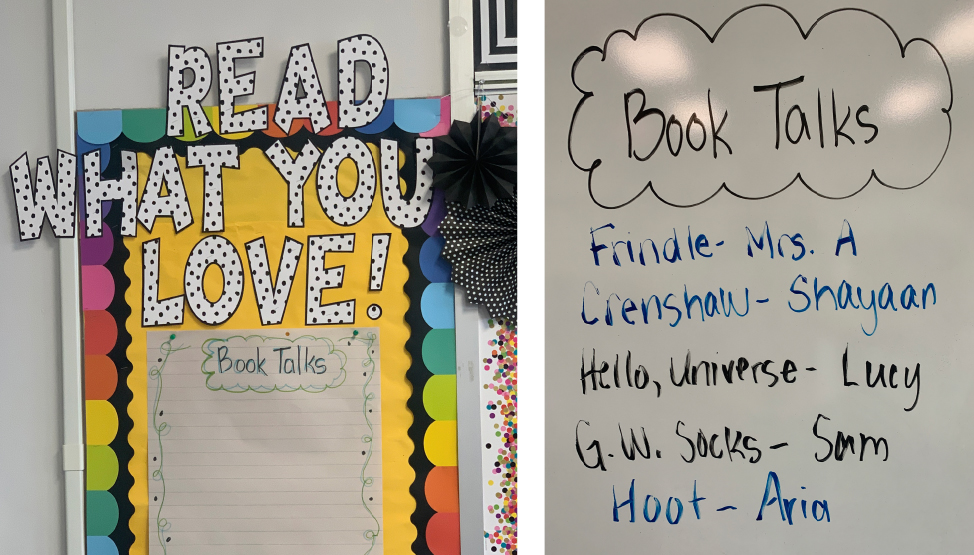 READ
WHAT YOU
LOVE!
Book Talks
Book Talks
Frindle- Mrs. A
Crenshaw- Shayaan
Hello, Universe- Lucy
G.W. Socks- Sam
Hoot- Aria